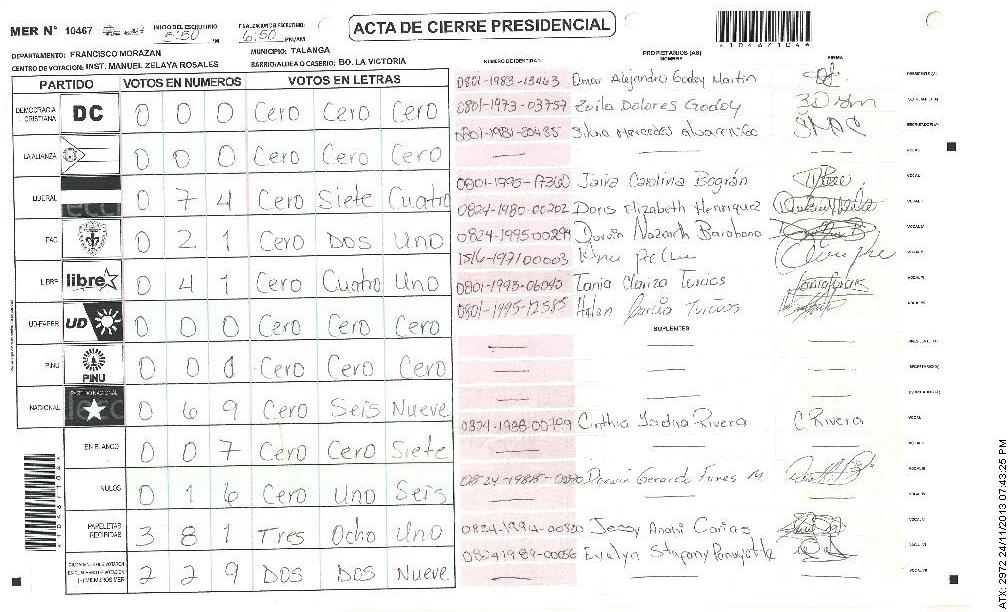 MER N° 10467 INICIO DEL ESCRUTINIO: 5:50 PM FINALIZACION DEL ESCRUTINIO: 6:50 PM/AM
ACTA DE CIERRE PRESIDENCIAL
*10467104*
DEPARTAMENTO: FRANCISCO MORAZAN MUNICIPIO: TALANGA
CENTRO DE VOTACION: INST. MANUEL ZELAYA ROSALES BARRIO/ALDEA O CASERIO: BO. LA VICTORIA
PARTIDO VOTOS EN NUMEROS VOTOS EN LETRAS
DEMOCRACIA CRISTIANA DC 0 0 0 Cero Cero Cero
LA ALIANZA 0 0 0 Cero Cero Cero
LIBERAL 0 7 4 Cero Siete Cuatro
PAC 0 2 1 Cero Dos Uno
LIBRE libre 0 4 1 Cero Cuatro Uno
UD-FAPER UD 0 0 0 Cero Cero Cero
PINU PINU 0 0 0 Cero Cero Cero
NACIONAL PARTIDO NACIONAL 0 6 9 Cero Seis Nueve
EN BLANCO 0 0 7 Cero Cero Siete
NULOS 0 1 6 Cero Uno Seis
PAPELETAS RECIBIDAS 3 8 1 Tres Ocho Uno
2 2 9 Dos Dos Nueve
NUMERO DE IDENTIDAD PROPIETARIOS (AS) FIRMA
0801-1983-13463 Omar Alejandro Godoy Martin PRESIDENTE (A)
0801-1973-03757 Zoila Dolores Godoy SECRETARIO (A)
Silvia Mercedes ESCRUTADOR (A)
VOCAL
0801-1995-17360 Jaira Carolina Bográn VOCAL
0824-1980-00202 Doris Elizabeth Henriquez VOCAL
0824-1995 00294 Nazareth Barahona VOCAL
1516-1971 00003 VOCAL
0801-1993-06045 Tania Clariza Turcios VOCAL
0801-1995-12585 Helen Garcia Turcios VOCAL
SUPLENTES
PRESIDENTE (A)
SECRETARIO (A)
ESCRUTADOR (A)
0824-1988-00799 Cinthia Yadira Rivera C Rivera VOCAL
VOCAL
Darwin Gerardo Funes M VOCAL
VOCAL
0824-1994-00820 Jessy Anahi Carias VOCAL
0824 1989-00056 Evelyn Stefany VOCAL
VOCAL
ATX: 2972 24/11/2013 07:43:25 PM